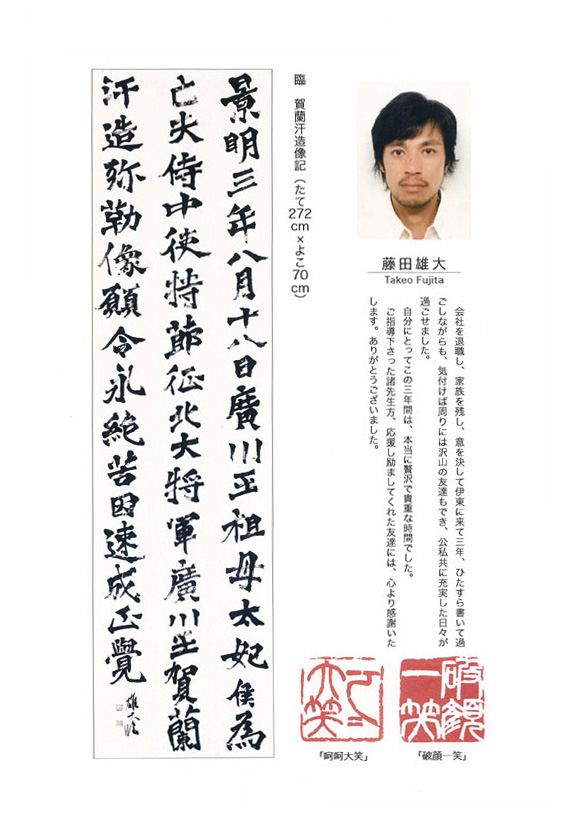 藤田雄大
Takeo Fujita
会社を退職し、家族を残し、意を決して伊東に来て三年、ひたすら書いて過
ごしながらも、気付けば周りには沢山の友達もでき、公私共に充実した日々が
過ごせました。
自分にとってこの三年間は、本当に贅沢で貴重な時間でした。
ご指導下さった諸先生方、応援し励ましてくれた友達には、心より感謝いた
します。ありがとうございました。
破顔
一笑
「破顔一笑」
大笑
「呵呵大笑」
臨　賀蘭汗造像記（たて272cm×よこ70cm）
景明三年八月十八日廣川王祖母太妃侯為
亡夫侍中使持節征北大將軍廣川王賀蘭
汗造弥勒像願令永絶苦因速成正覺
雄大臨